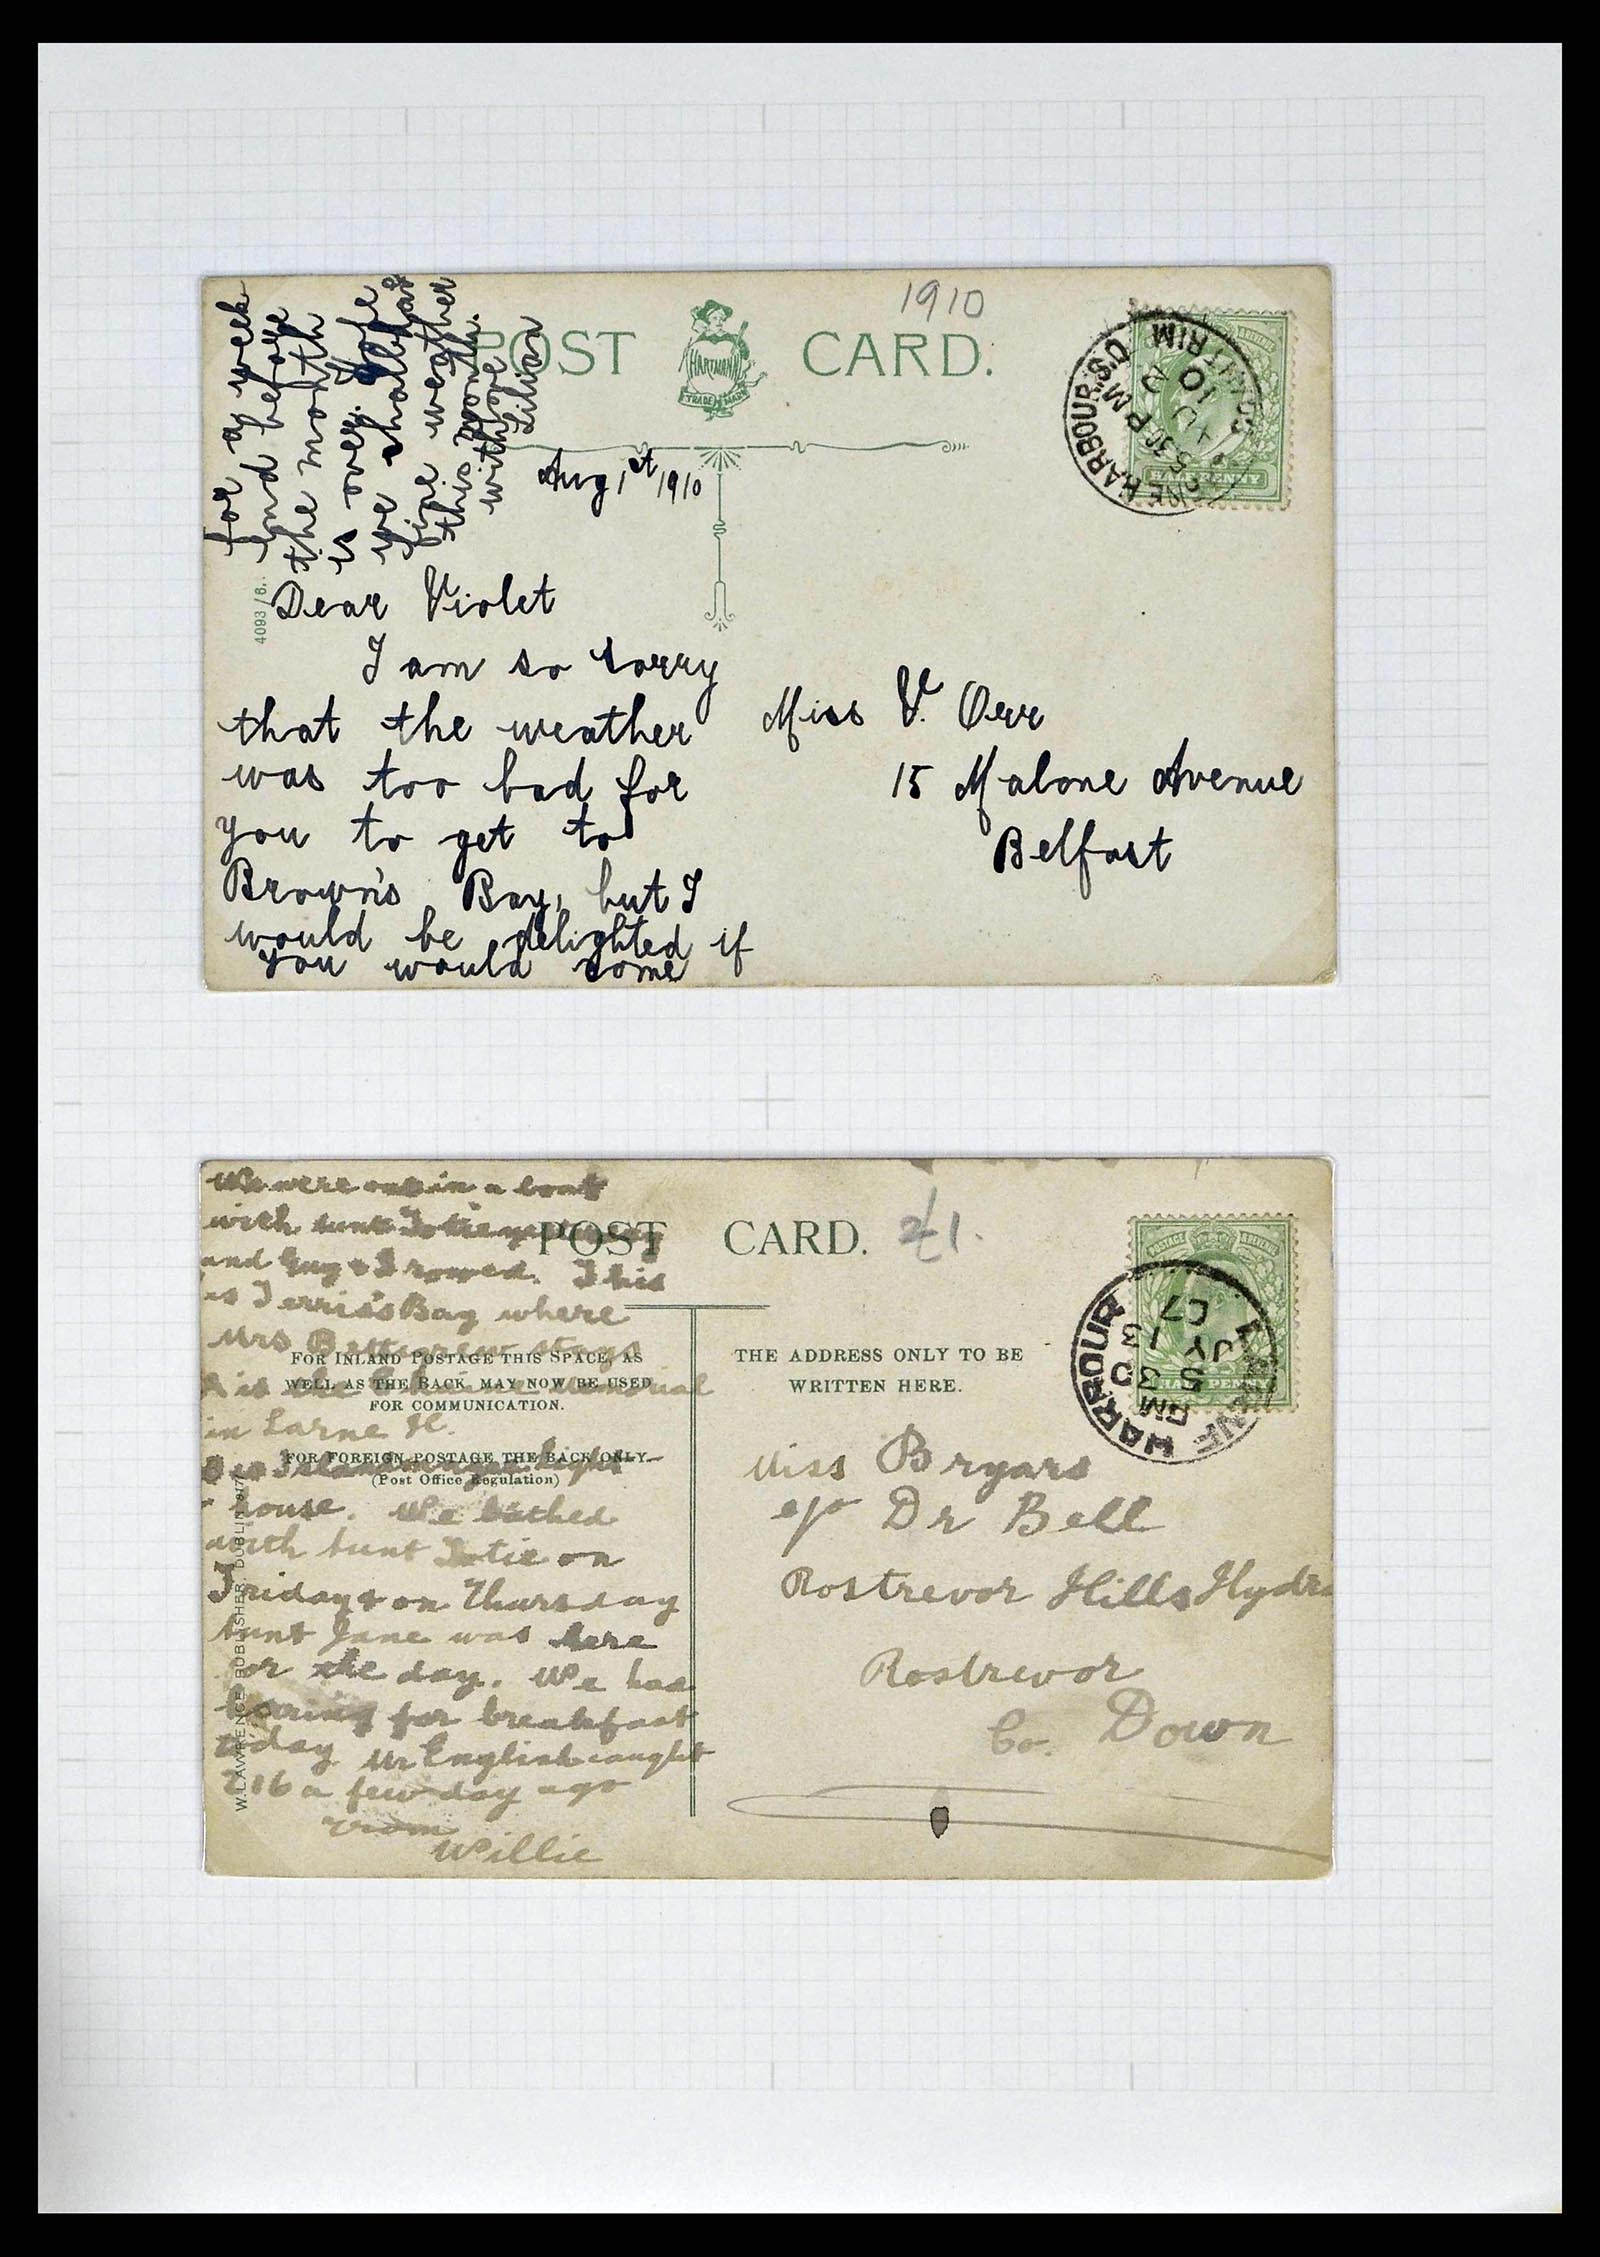 1910
POST CARD.
HARTMANN
TRADE MARK
HARBOUR.S.O.
ANTRIM
5 30 PM
AU 2
10
HALFPENNY
for a week
End before
the month
is over. Hope
we shall have
fine weather
this month.
with love
Lilian
Aug 1st 1910
4093/6.
Dear Violet
I am so sorry
that the weather
was too bad for
you to get to
Brown's Bay, but I
would be delighted if
you would come
Miss V. Orr
15 Malone Avenue
Belfast
We were out in a boat
with Aunt Totie
and Guy & I rowed. This
is Ferris's Bay where
Mrs Pettigrew stays
A is the Chaine Memorial
in Larne H.
B is Islandmagee light
house. We bathed
with Aunt Totie on
Friday & on Thursday
Aunt Jane was here
for the day. We had
herring for breakfast
today Mr English caught
216 a few day ago
from
Willie
POST CARD.
£1.
FOR INLAND POSTAGE THIS SPACE, AS
WELL AS THE BACK, MAY NOW BE USED
FOR COMMUNICATION.
FOR FOREIGN POSTAGE THE BACK ONLY
(Post Office Regulation)
THE ADDRESS ONLY TO BE
WRITTEN HERE.
W. LAWRENCE, PUBLISHER, DUBLIN
POSTAGE REVENUE
LARNE HARBOUR
5 30 PM
JY 13
07
HALFPENNY
Miss Bryars
c/o Dr Bell
Rostrevor Hills Hydro
Rostrevor
Co. Down